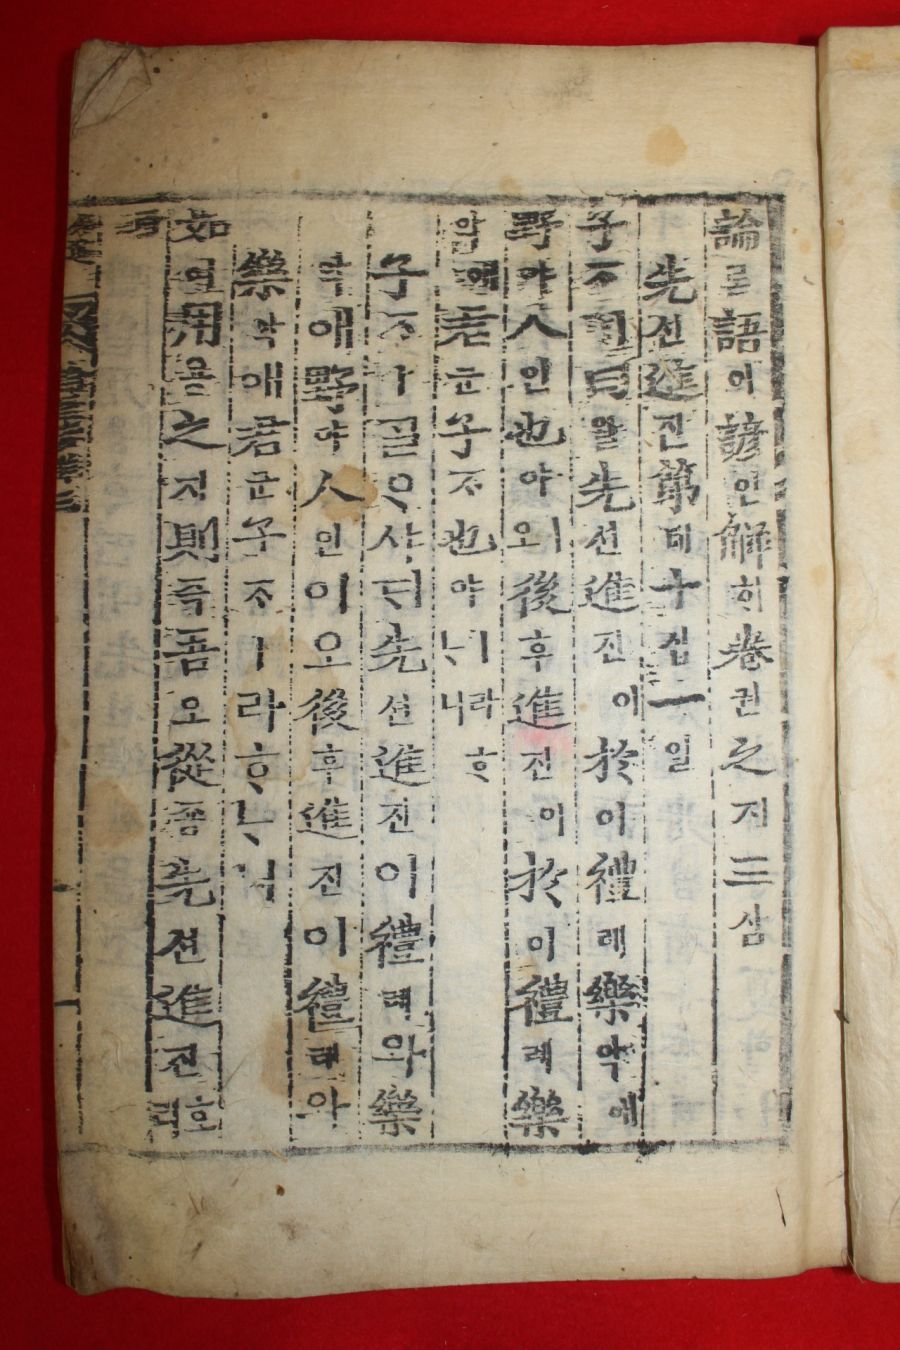 論론語어諺언解ᄒᆡ卷권之지三삼
先션進진第뎨十십一일
子ᄌᆞㅣ曰왈先션進진이於어禮례樂악애
野야人인也야ㅣ오後후進진이於어禮례樂
악애君군子ᄌᆞ也야ㅣ니라ᄒᆞᄂᆞ니
子ᄌᆞㅣᄀᆞᆯᄋᆞ샤ᄃᆡ先션進진이禮례와樂
악애野야人인이오後후進진이禮례와
樂악애君군子ᄌᆞㅣ라ᄒᆞᄂᆞ니
如여用용之지則즉吾오從죵先션進진호리